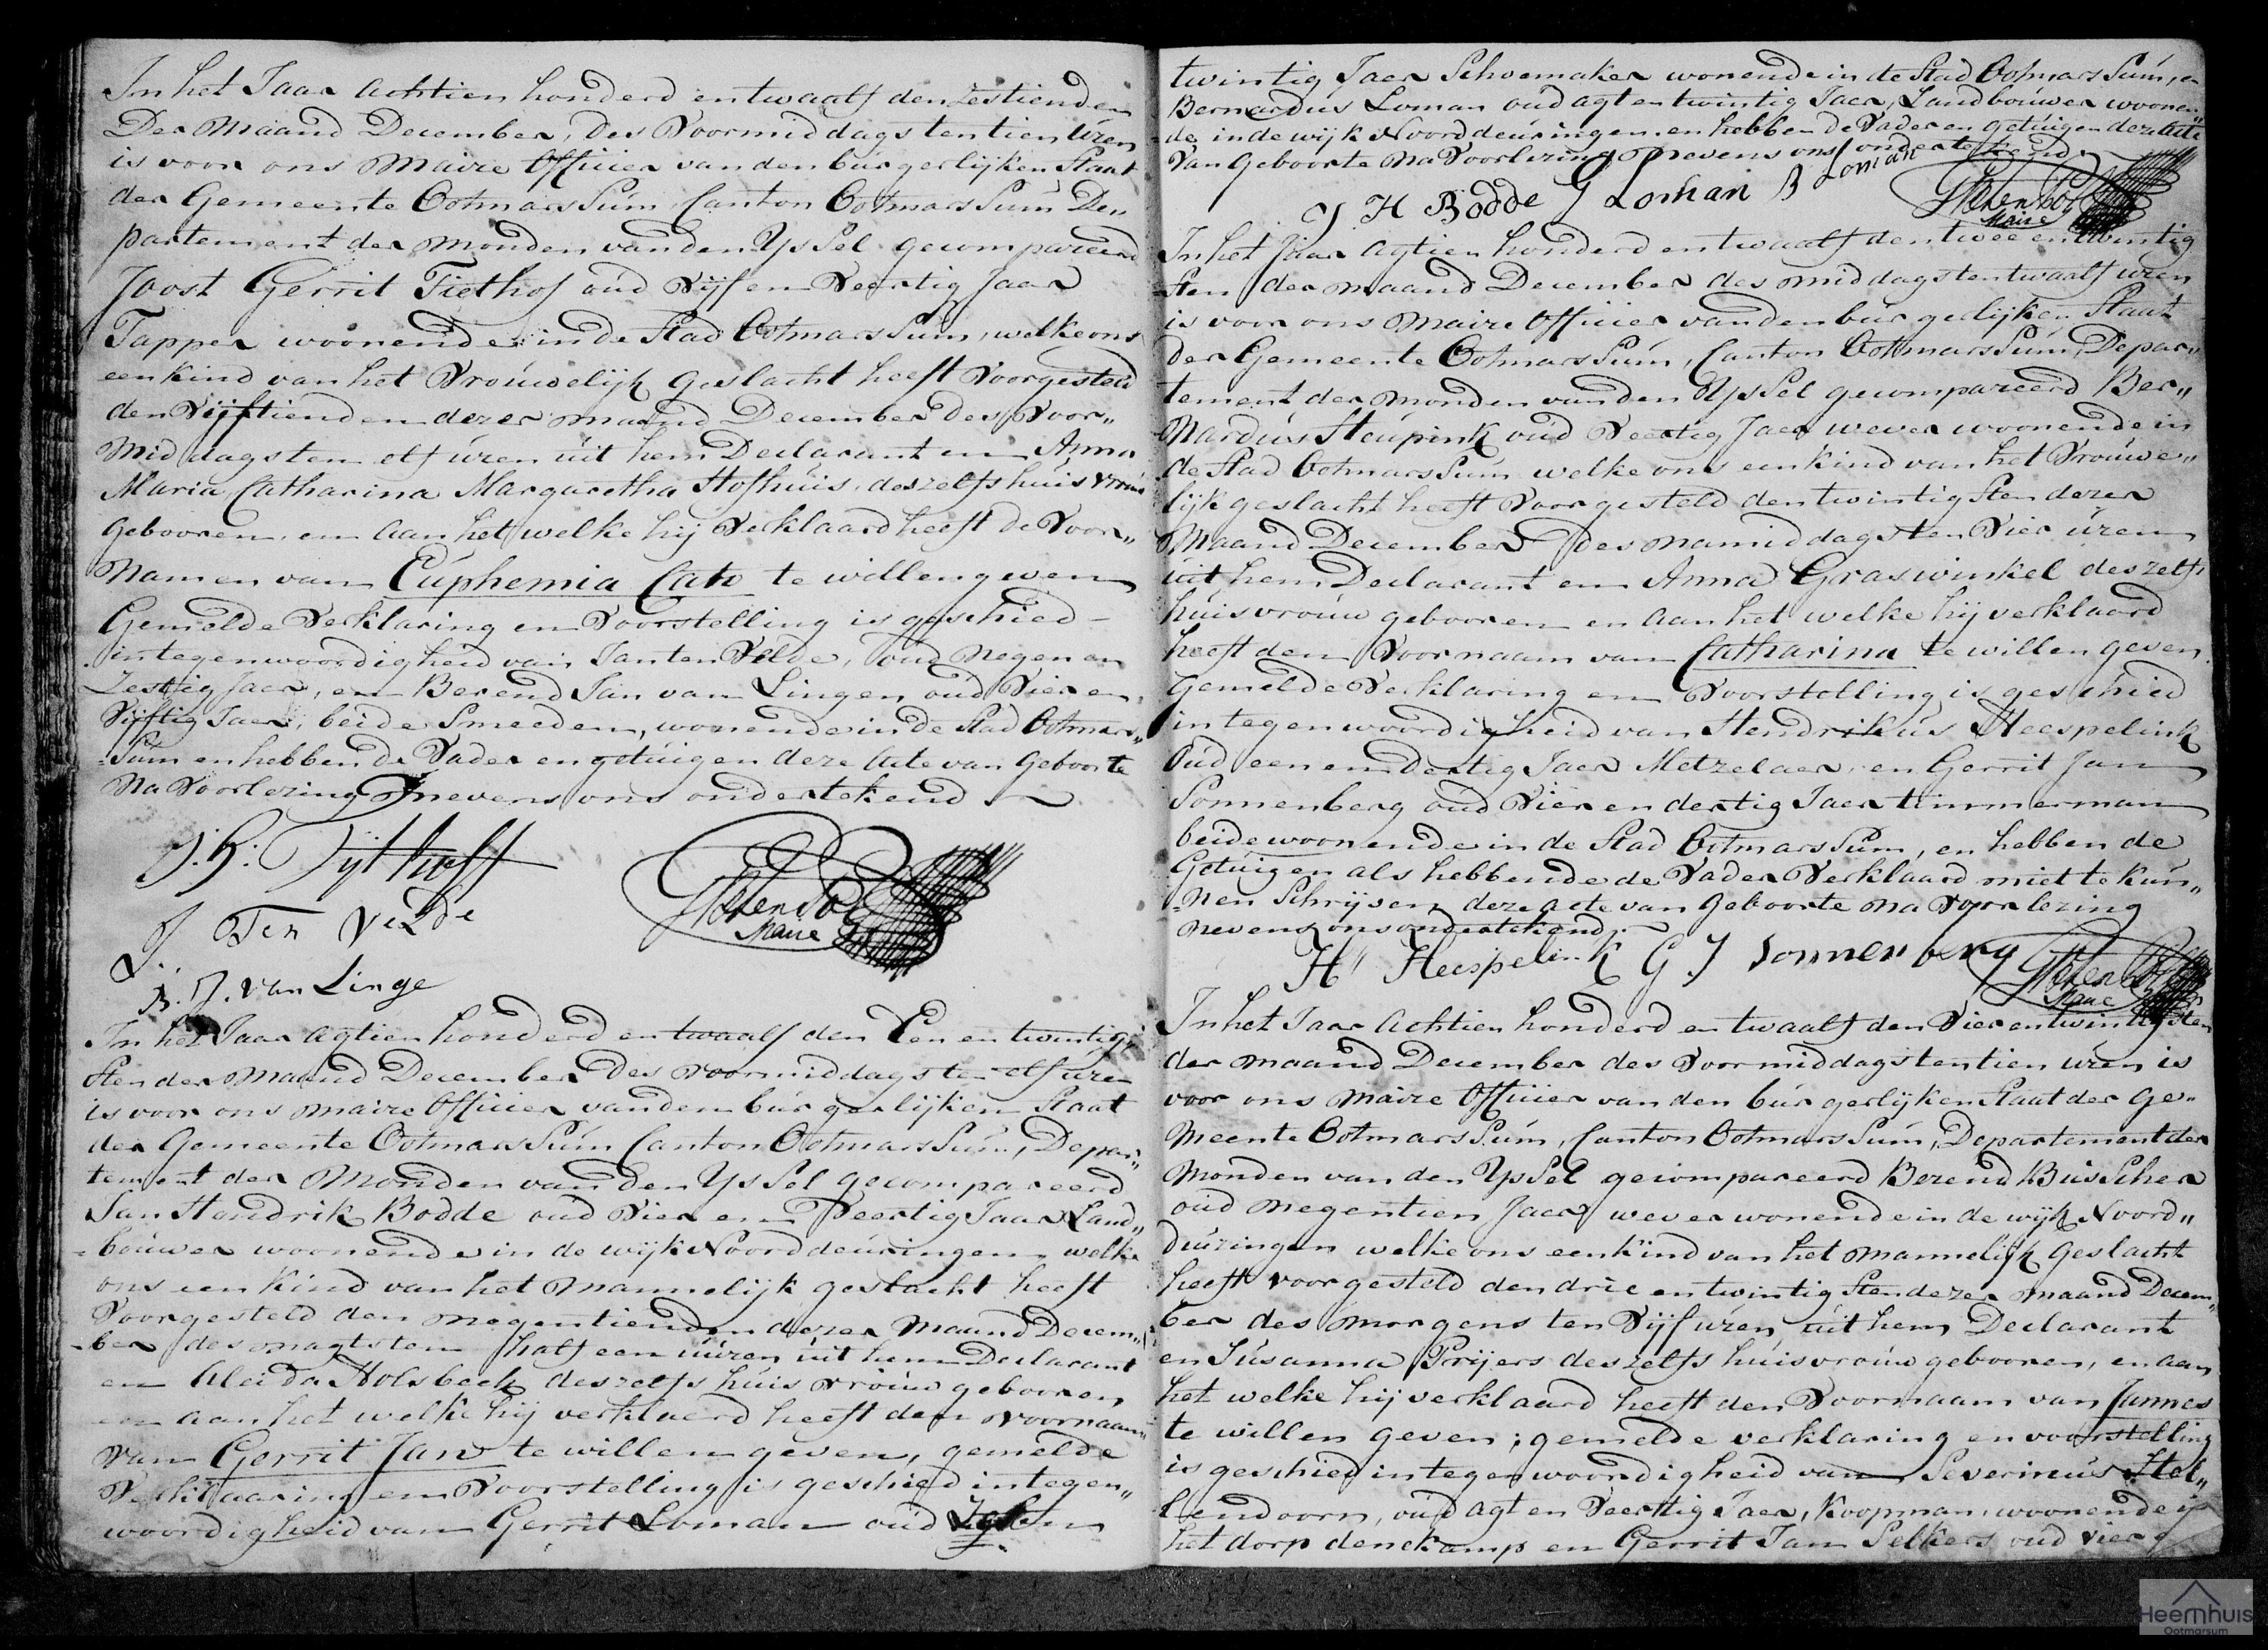 In het Jaar Achtien honderd en twaalf den zestienden
Der Maand December, Des Voormiddags ten tien Uren
is voor ons Maire Officier van den burgerlijken Staat
der Gemeente OotmarsSum, Canton OotmarsSum De„
partement der Monden van den YsSel gecompareerd
Joost Gerrit Tiethof oud Vijf en Veertig Jaar
Tapper woonende in de Stad OotmarsSum, welke ons
een kind van het Vrouwelijk Geslacht heeft Voorgesteld
den Vijftienden dezer maand December des Voor„
Middags ten elf uren uit hem Declarant en Anna
Maria Catharina Margaretha Hofhuis, deszelfs huisvrouw
Gebooren, en aan het welke hij Verklaard heeft de Voor„
Namen van Euphemia Cato te willen geven
Gemelde Verklaring en Voorstelling is geschied
in tegenwoordigheid van Jan ten Velde, oud Negen en
Zestig Jaar, en Berend Jan van Lingen oud Vier en
Vijftig Jaar, beide Smeeden, wonende in de Stad Ootmars„
Sum en hebben de Vader en getuigen deze Acte van Geboorte
Na Voorlezing nevens ons ondertekend
J. G: Tijthoff
J Ten Velde
Maire
B. J. van Linge
In het Jaar Agtien honderd en twaalf den Een en twintig„
Sten der Maand December des voormiddags ten elf uren
is voor ons Maire Officier van den burgerlijken Staat
der Gemeente OotmarsSum Canton OotmarsSum, Depar„
tement der Monden van den YsSel gecompareerd
Jan Hendrik Bodde oud Vier en Veertig Jaar Land„
bouwer woonende in de wijk Noorddeuringen, welke
ons een Kind van het Mannelijk geslacht heeft
Voorgesteld den negentienden dezer Maand Decem„
ber des nagts ten half een uuren uit hem Declarant
en Aleida Holsbeek deszelfs huisvrouw gebooren,
en aan het welke hij verklaard heeft den Voornaam
van Gerrit Jan te willen geven, gemelde
Verklaaring en Voorstelling is geschied in tegen„
woordigheid van Gerrit Loman oud
twintig Jaer Schoemaker wonende in de Stad OotmarsSum, en
Bernardus Loman oud agt en twintig Jaer, Landbouwer woonen„
de in de wijk Noorddeuringen en hebben de Vader en getuigen deze Acte
Van Geboorte na Voorlezing nevens ons ondertekend
J H Bodde G Loman B Loman
Maire
In het Jaar Agtien honderd en twaalf den twee en twintig
Sten der Maand December des middags ten twaalf uren
is voor ons Maire Officier van den burgerlijken Staat
der Gemeente OotmarsSum, Canton OotmarsSum, Depar„
tement der monden van den YsSel gecompareerd Ber„
Nardus Heupink oud Veertig Jaer wever woonende in
de Stad OotmarsSum welke ons een kind van het Vrouwe„
lijk geslacht heeft Voorgesteld den twintigsten dezer
Maand December des namiddags ten Vier uren
uit hem Declarant en Anna Graswinkel deszelfs
huisvrouw gebooren en aan het welke hij verklaard
heeft den Voornaam van Catharina te willen geven.
Gemelde Verklaring en Voorstelling is geschied
in tegenwoordigheid van Hendrikus Heespelink
Oud een en dertig Jaer Metzelaer, en Gerrit Jan
Sonnenberg oud Vier en dertig Jaer timmerman
beide woonende in de Stad OotmarsSum, en hebben de
Getuigen als hebbende de Vader Verklaard niet te Kun„
Nen Schrijven deze acte van Geboorte na Voorlezing
nevens ons ondertekend.
H Heespelink G J Sonnenberg
Maire
In het Jaar Achtien honderd en twaalf den Vier en twintigsten
der maand December des Voormiddags ten tien uren is
voor ons Maire Officier van den burgerlijken Staat der Ge„
Meente OotmarsSum, Canton OotmarsSum, Departement der
Monden van den YsSel gecompareerd Berend BusScher
oud Negentien Jaer wever wonende in de wijk Noord„
duringen welke ons een kind van het Mannelijk Geslacht
heeft voorgesteld den drie en twintigsten dezer maand Decem„
ber des Morgens ten Vijf uren, uit hem Declarant
en Susanna Prijers deszelfs huisvrouw gebooren, en aan
het welke hij verklaard heeft den Voornaam van Jannes
te willen geven; gemelde verklaring en voorstelling
is geschied in tegenwoordigheid van Severineus Hel„
lendoorn, oud agt en Veertig Jaer, Koopman, woonende in
het dorp denekamp en Gerrit Jan Selkers oud vier
Heemhuis
Ootmarsum